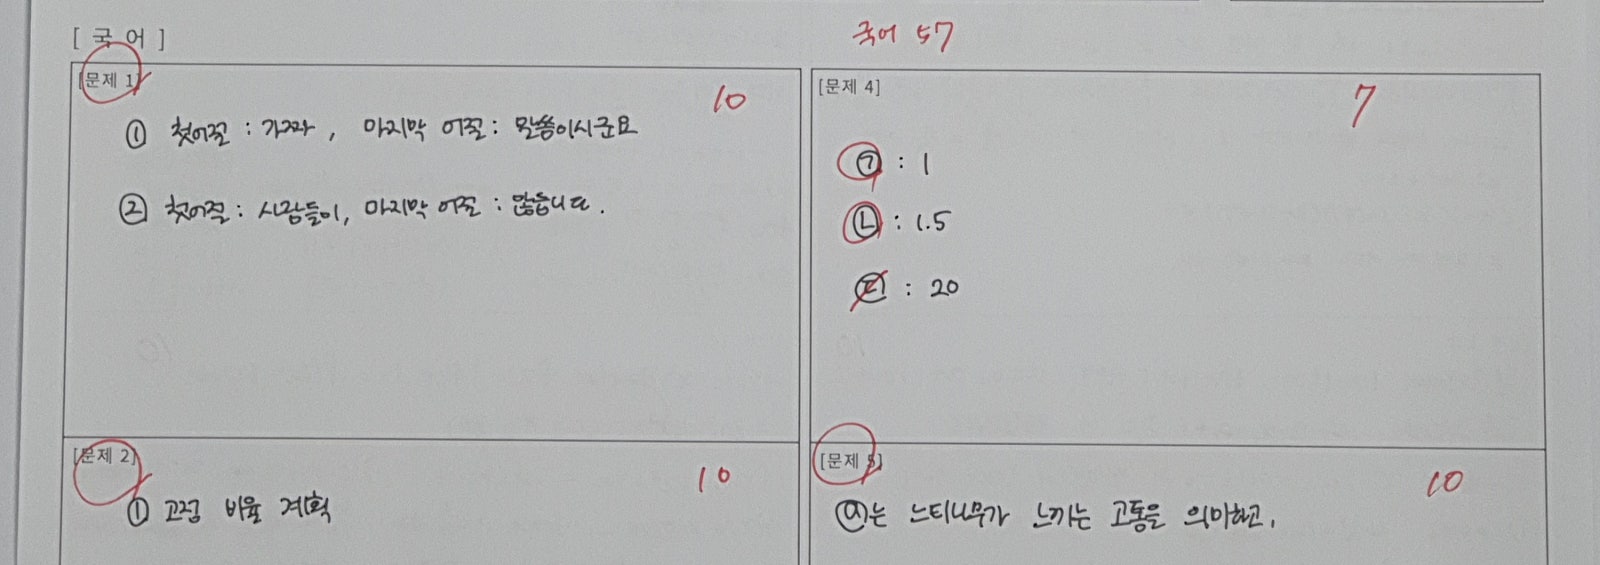 [ 국 어 ]
국어 57
[문제 1]
10
① 첫어절 : 가까 , 마지막 어절 : 말씀이시군요
② 첫어절 : 사람들이, 마지막 어절 : 많습니다.
[문제 2]
10
① 고정 비율 계획
[문제 4]
7
㉠ : 1
㉡ : 1.5
㉢ : 20
[문제 5]
10
ⓐ는 느티나무가 느끼는 고통을 의미하고,